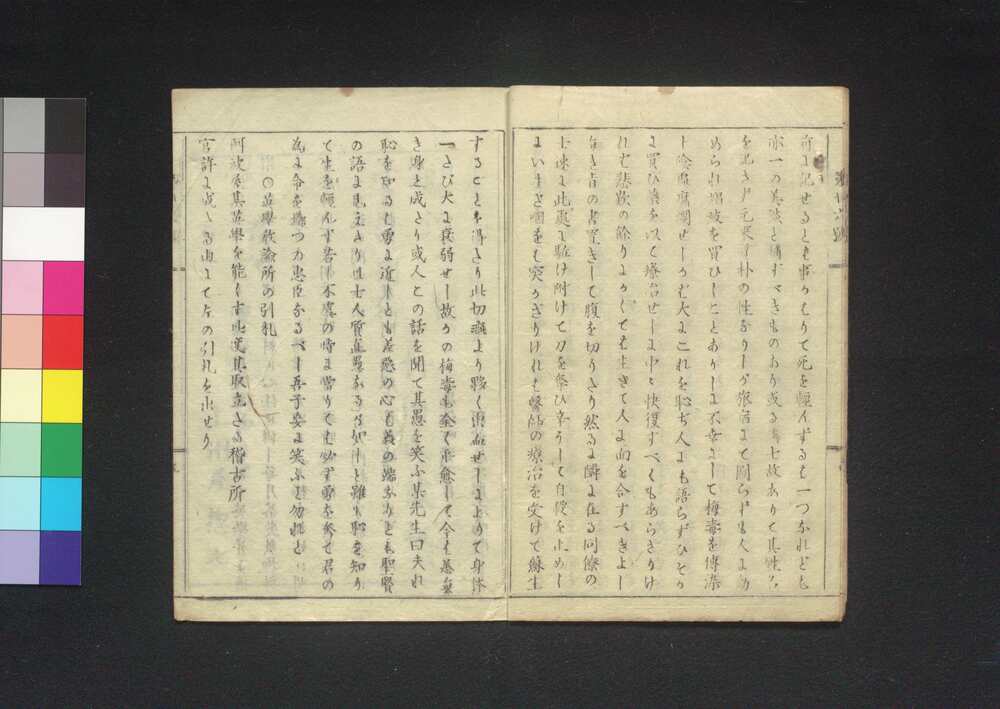 前に記せるとも事かはりて死を軽んずるも一つなれども
亦一の美談と謂ずべきものあり或る書七故ありて其姓名
を出さず元来朴の性なりしが旅宿にて図らずも人より
められ娼妓を買ひしことありしに不幸にして梅毒を傳染
し陰處腐爛せしかば大にこれを恥ぢ人にも語らずひそか
に買ひ薬を以て療治せしに中々快復すべくもあらざりけ
れば悲歎の餘りよかくても生きて人に面を合すべきよし
なき旨の書置きして腹を切りたり然るに隣に在る同僚の
士速に此處に駈け附けて刀を奪ひ辛うして自殺を止めし
に いまだ咽をも突かざりければ醫師の療治を受けて蘇生
することを得たり此切瘡より夥く出血せしによりて身体
一たび大に衰弱せし故かの梅毒も全く平愈して今は恙無
き身と成たり或人この話を聞て其愚を笑ふ某先生曰夫れ
恥を知るは勇に近しとも羞悪の心は義の端なりとも聖賢
の語に見えたり此士人質直愚なるが如しと雖も恥を知り
て生を軽んず若し不虞の時に當りては必ず勇を奮て君の
為に命を捨つる忠臣なるべし吾子妄に笑ふと勿れと
〇並學教諭所の引札
阿波 其並學を能くす 度其取立たる稽古所
官許に成 る由にて左の引札を出せり